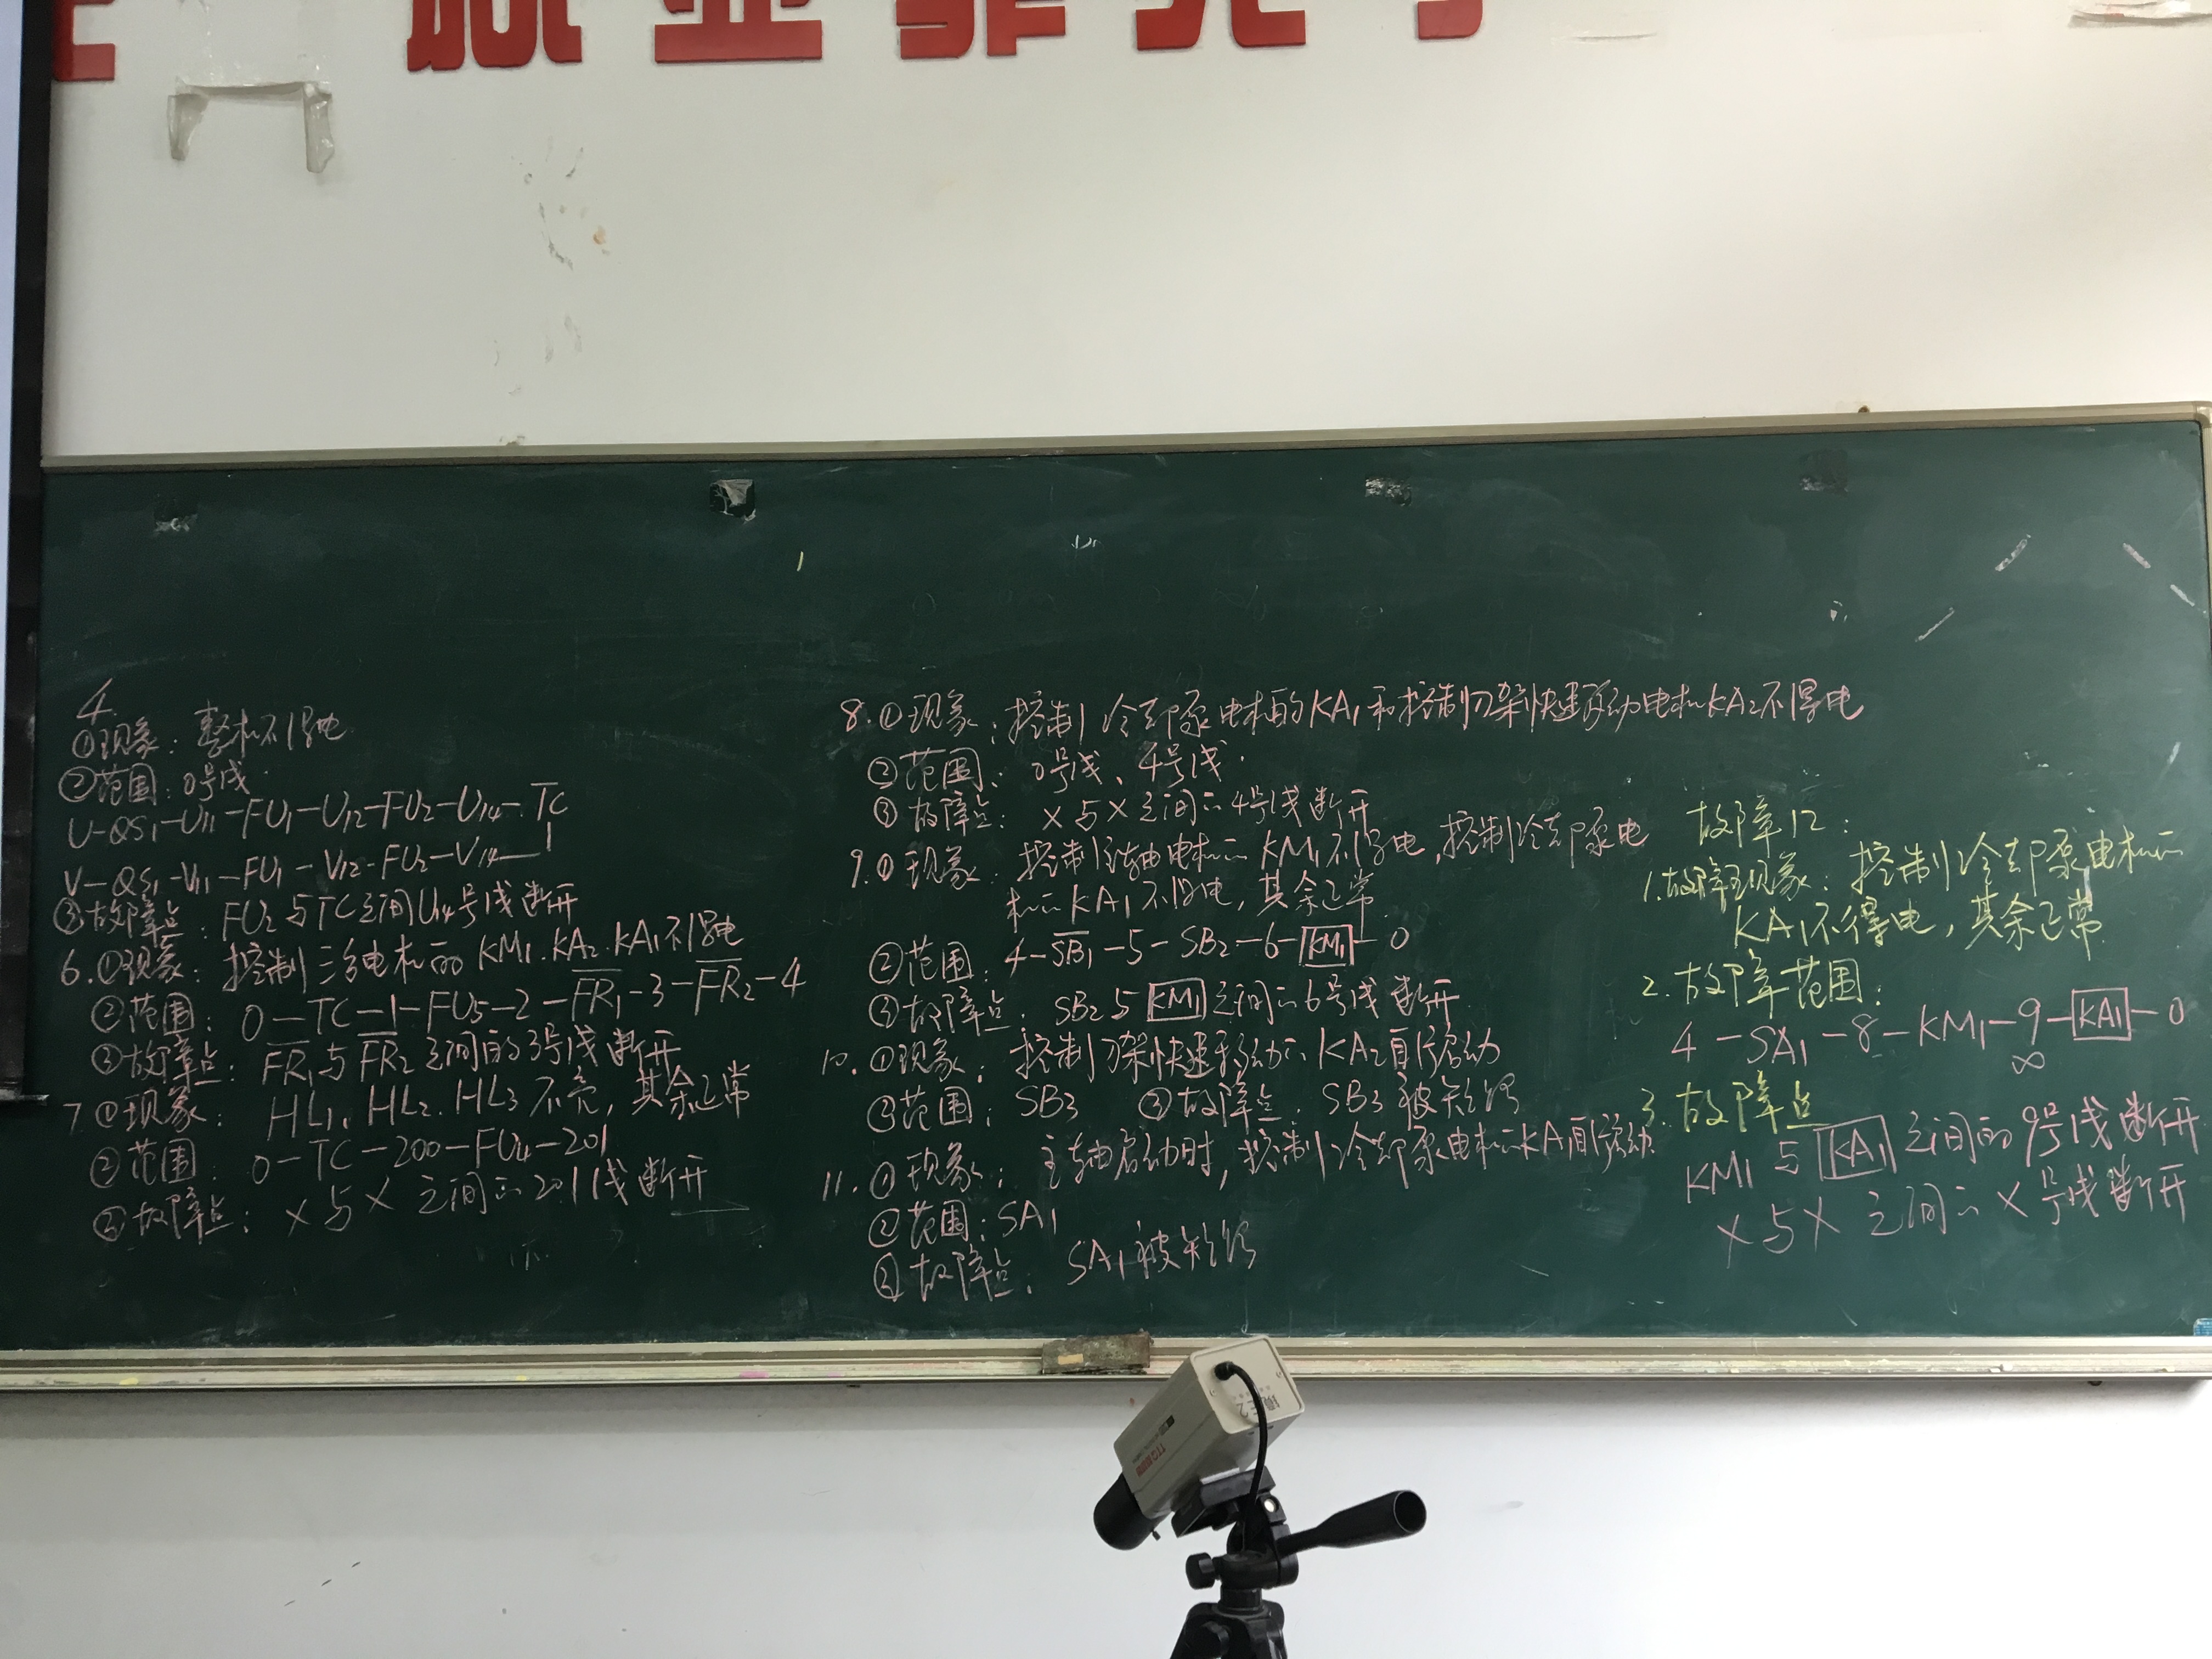 就业靠竞争
4.
①现象：整机不得电
②范围：0号线
U-QS1-U11-FU1-U12-FU2-U14-TC
V-QS1-V11-FU1-V12-FU2-V14
③故障点：FU2与TC之间U14号线断开
6.①现象：控制三台电机的KM1.KA2.KA1不得电
②范围：0-TC-1-FU5-2-FR1-3-FR2-4
③故障点：FR1与FR2之间的3号线断开
7①现象：HL1.HL2.HL3不亮，其余正常
②范围：0-TC-200-FU4-201
③故障点：×与×之间的201线断开
8.①现象：控制冷却泵电机的KA1和控制刀架快速移动电机KA2不得电
②范围：0号线、4号线.
③故障点：×与×之间的4号线断开
9.①现象：控制主轴电机的KM1不得电，控制冷却泵电
机的KA1不得电，其余正常
②范围：4-SB1-5-SB2-6-KM1-0
③故障点：SB2与KM1之间的6号线断开
10.①现象：控制刀架快速移动的KA2自行启动
②范围：SB3 ③故障点：SB3被短路
11.①现象：主轴启动时，控制冷却泵电机的KA1自行启动.
②范围：SA1
③故障点：SA1被短路
故障12：
1.故障现象：控制冷却泵电机的
KA1不得电，其余正常
2.故障范围：
4-SA1-8-KM1-9-KA1-0
∞
3.故障点
KM1与KA1之间的9号线断开
×与×之间的×号线断开